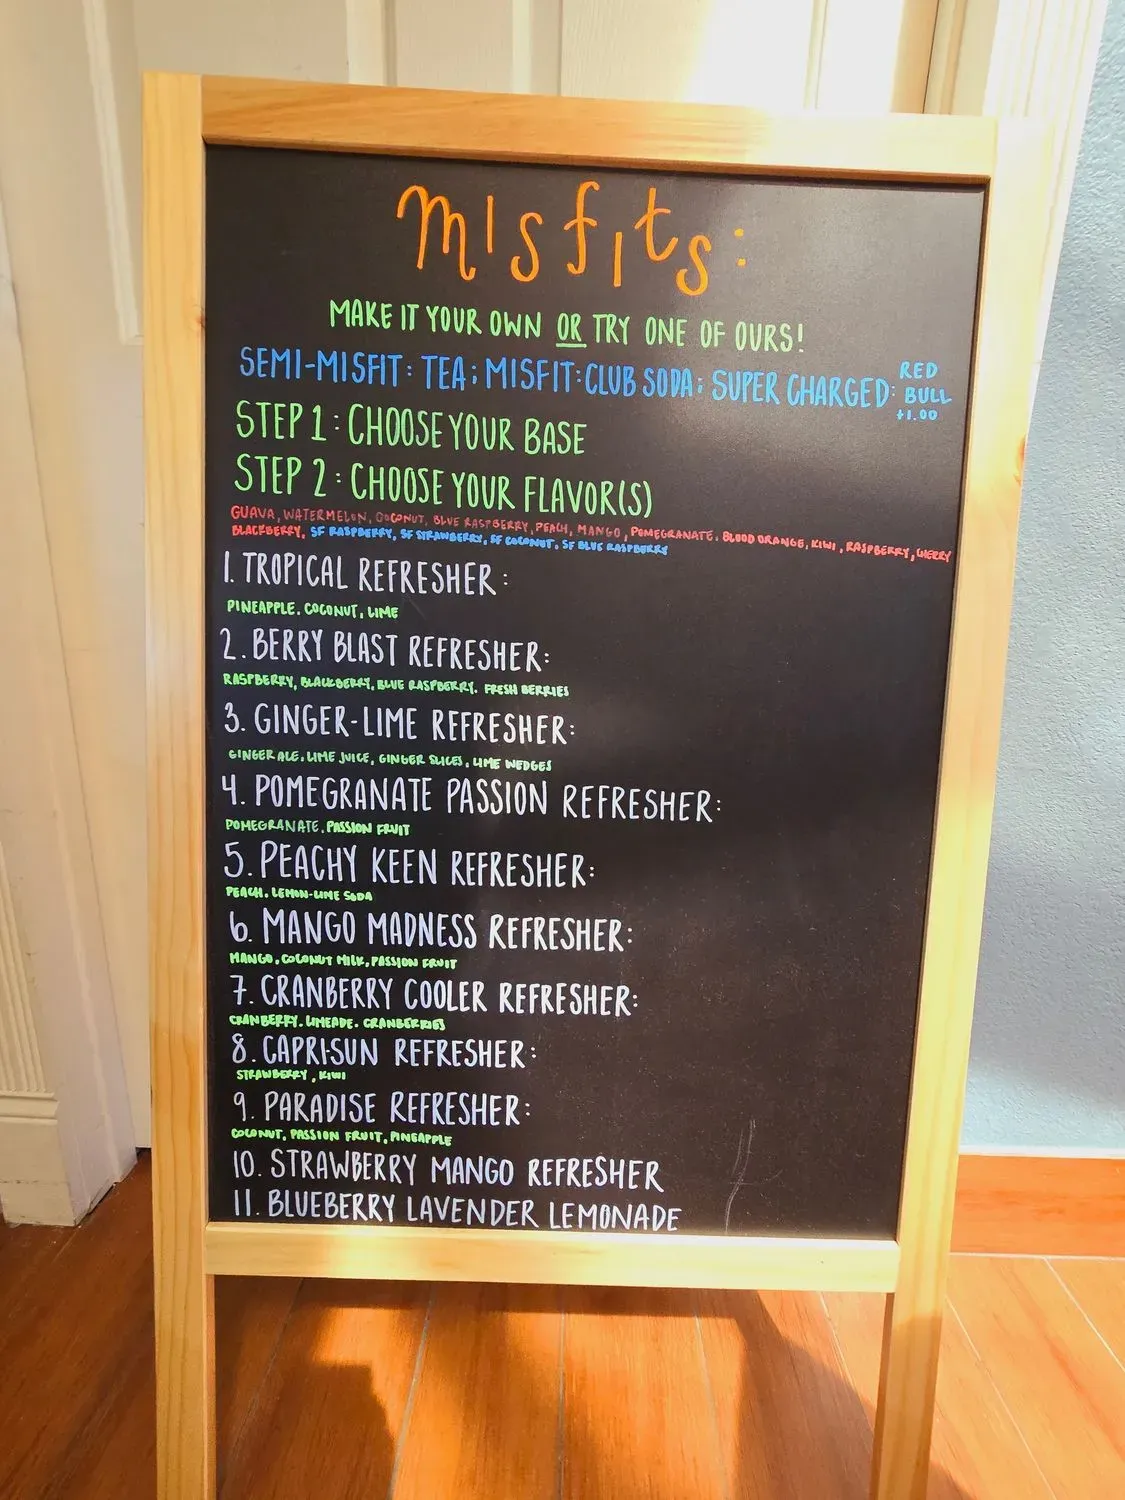 misfits:
MAKE IT YOUR OWN OR TRY ONE OF OURS!
SEMI-MISFIT: TEA; MISFIT: CLUB SODA; SUPER CHARGED: RED BULL +1.00
STEP 1: CHOOSE YOUR BASE
STEP 2: CHOOSE YOUR FLAVOR(S)
GUAVA, WATERMELON, COCONUT, BLUE RASPBERRY, PEACH, MANGO, POMEGRANATE, BLOOD ORANGE, KIWI, RASPBERRY, CHERRY
BLACKBERRY, SF RASPBERRY, SF STRAWBERRY, SF COCONUT, SF BLUE RASPBERRY
1. TROPICAL REFRESHER:
PINEAPPLE, COCONUT, LIME
2. BERRY BLAST REFRESHER:
RASPBERRY, BLACKBERRY, BLUE RASPBERRY, FRESH BERRIES
3. GINGER-LIME REFRESHER:
GINGER ALE, LIME JUICE, GINGER SLICES, LIME WEDGES
4. POMEGRANATE PASSION REFRESHER:
POMEGRANATE, PASSION FRUIT
5. PEACHY KEEN REFRESHER:
PEACH, LEMON-LIME SODA
6. MANGO MADNESS REFRESHER:
MANGO, COCONUT MILK, PASSION FRUIT
7. CRANBERRY COOLER REFRESHER:
CRANBERRY, LIMEADE, CRANBERRIES
8. CAPRI-SUN REFRESHER:
STRAWBERRY, KIWI
9. PARADISE REFRESHER:
COCONUT, PASSION FRUIT, PINEAPPLE
10. STRAWBERRY MANGO REFRESHER
11. BLUEBERRY LAVENDER LEMONADE